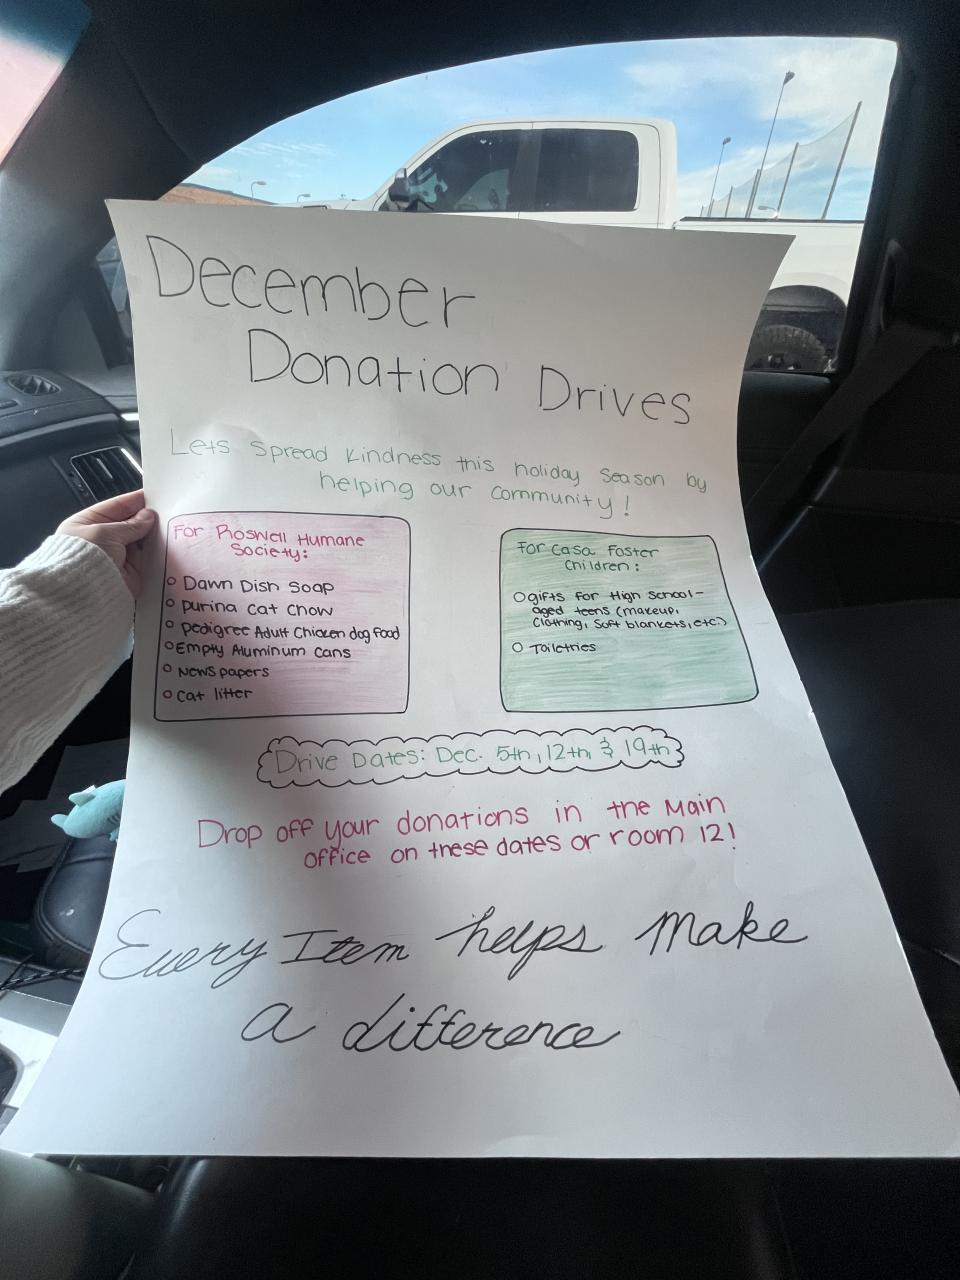 December
Donation Drives
Lets spread kindness this holiday season by
helping our community!
For Roswell Humane
Society:
Dawn Dish Soap
Purina Cat Chow
Pedigree Adult Chicken dog food
Empty Aluminum cans
News papers
Cat litter
For Casa Foster
Children:
gifts for High School-
aged teens (makeup,
Clothing, Soft blankets, etc.)
Toiletries
Drive Dates: Dec. 5th, 12th, & 19th
Drop off your donations in the Main
office on these dates or room 12!
Every Item helps Make
a difference